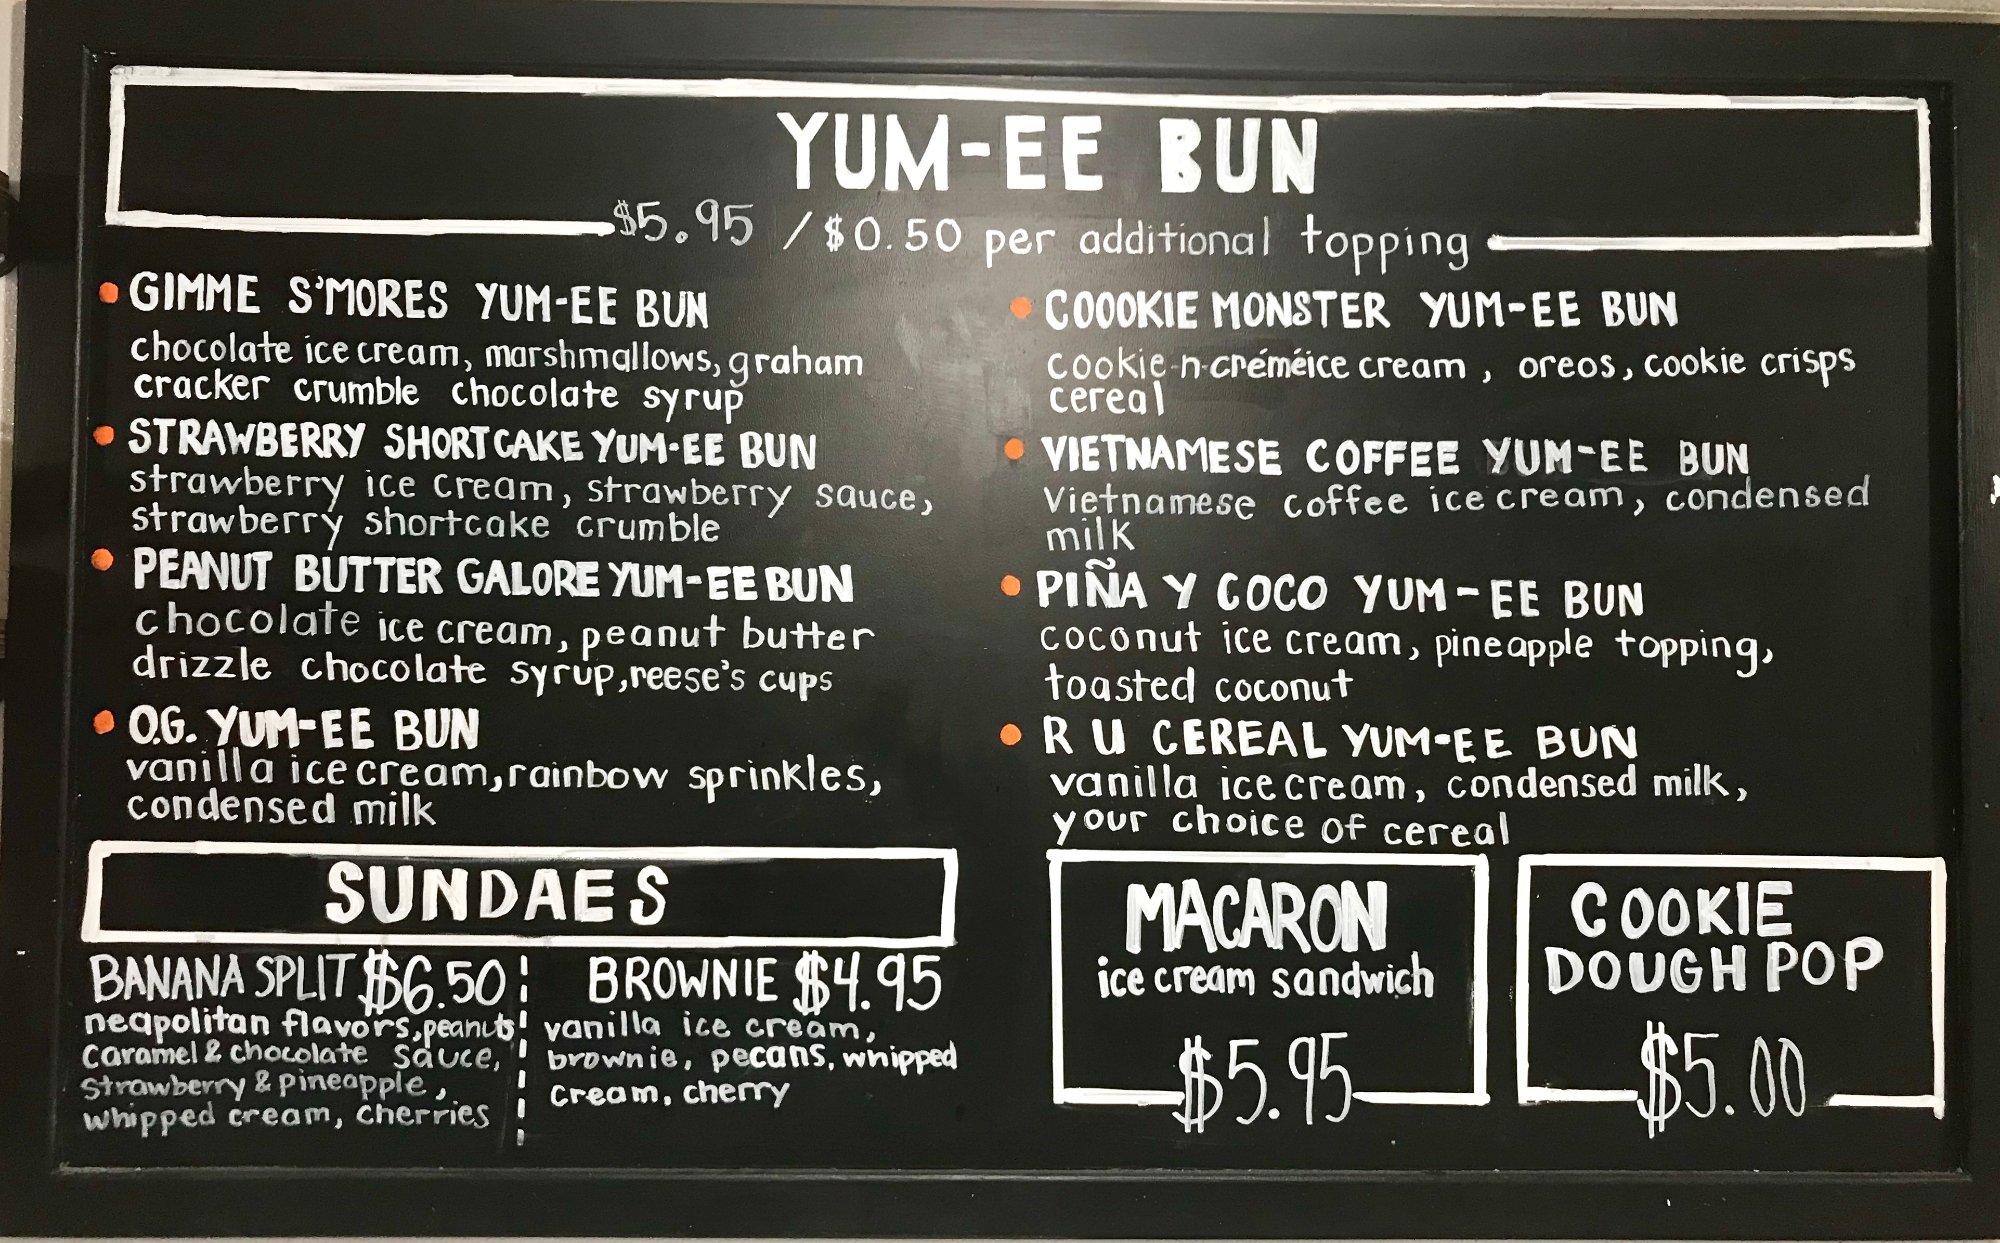 YUM-EE BUN
$5.95 / $0.50 per additional topping
GIMME S'MORES YUM-EE BUN
chocolate ice cream, marshmallows, graham
cracker crumble chocolate syrup
STRAWBERRY SHORTCAKE YUM-EE BUN
strawberry ice cream, strawberry sauce,
strawberry shortcake crumble
PEANUT BUTTER GALORE YUM-EE BUN
chocolate ice cream, peanut butter
drizzle chocolate syrup, reese's cups
O.G. YUM-EE BUN
vanilla ice cream, rainbow sprinkles,
condensed milk
COOOKIE MONSTER YUM-EE BUN
cookie-n-créméice cream, oreos, cookie crisps
cereal
VIETNAMESE COFFEE YUM-EE BUN
Vietnamese coffee ice cream, condensed
milk
PIÑA Y COCO YUM-EE BUN
coconut ice cream, pineapple topping,
toasted coconut
R U CEREAL YUM-EE BUN
vanilla ice cream, condensed milk,
your choice of cereal
SUNDAES
BANANA SPLIT $6.50
neapolitan flavors, peanuts
caramel & chocolate sauce,
strawberry & pineapple,
whipped cream, cherries
BROWNIE $4.95
vanilla ice cream,
brownie, pecans, whipped
cream, cherry
MACARON
ice cream sandwich
$5.95
COOKIE
DOUGH POP
$5.00